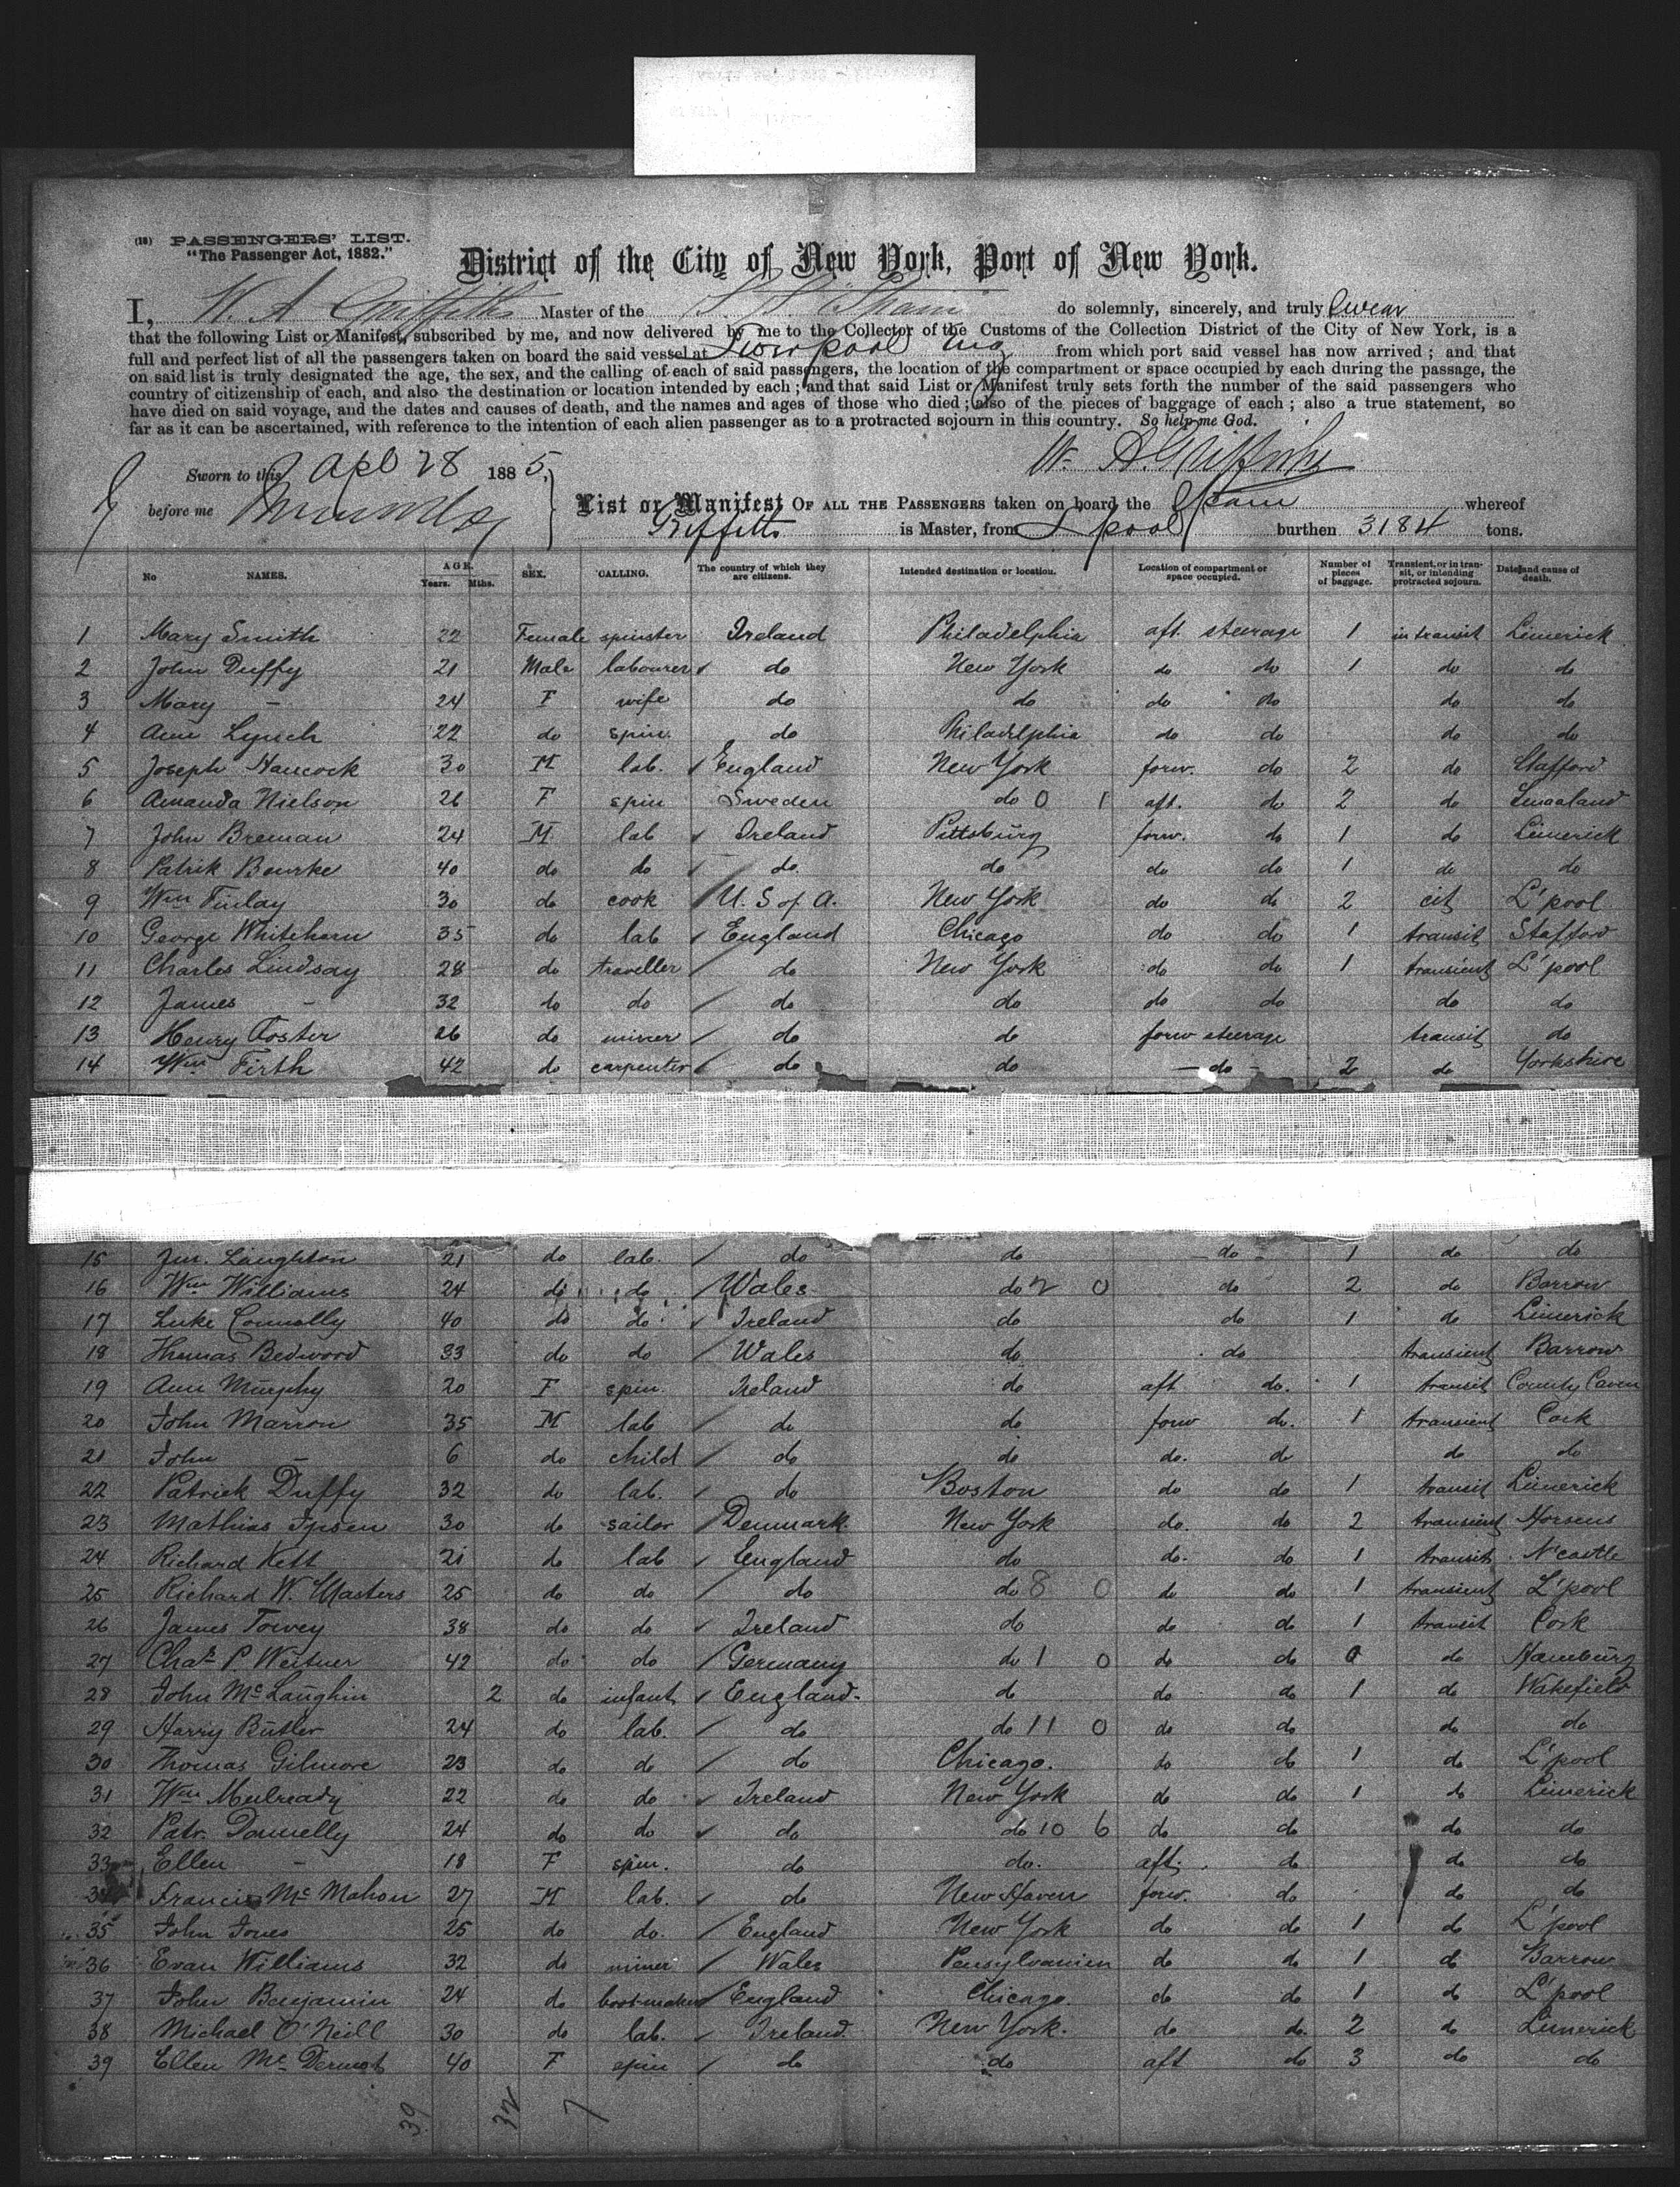 (18) PASSENGERS' LIST.
"The Passenger Act, 1882."
District of the City of New York, Port of New York.
I, W. A Griffiths Master of the S. S. "Spain" do solemnly, sincerely, and truly Swear
that the following List or Manifest, subscribed by me, and now delivered by me to the Collector of the Customs of the Collection District of the City of New York, is a
full and perfect list of all the passengers taken on board the said vessel at Liverpool Eng from which port said vessel has now arrived ; and that
on said list is truly designated the age, the sex, and the calling of each of said passengers, the location of the compartment or space occupied by each during the passage, the
country of citizenship of each, and also the destination or location intended by each ; and that said List or Manifest truly sets forth the number of the said passengers who
have died on said voyage, and the dates and causes of death, and the names and ages of those who died ; also of the pieces of baggage of each ; also a true statement, so
far as it can be ascertained, with reference to the intention of each alien passenger as to a protracted sojourn in this country. So help me God.
W. A. Griffiths
Sworn to this Apl 28 1885,
before me
List or Manifest OF ALL THE PASSENGERS taken on board the Spain whereof
Griffiths is Master, from L'pool burthen 3184 tons.
No NAMES. AGE. Years. Mths. SEX. CALLING. The country of which they are citizens. Intended destination or location. Location of compartment or space occupied. Number of pieces of baggage. Transient, or in transit, or intending protracted sojourn. Date and cause of death.
1 Mary Smith 22 Female spinster Ireland Philadelphia aft. steerage 1 in transit Limerick
2 John Duffy 21 Male labourer do New York do do 1 do do
3 Mary — 24 F wife do do do do do do
4 Ann Lynch 22 do spin. do Philadelphia do do do do
5 Joseph Hancock 30 M lab. England New York forw. do 2 do Stafford
6 Amanda Nielson 26 F spin Sweden do 0 1 aft. do 2 do Smaaland
7 John Brennan 24 M lab Ireland Pittsburg forw. do 1 do Limerick
8 Patrik Bourke 40 do do do. do do do 1 do do
9 Wm Finlay 30 do cook U. S of A. New York do do 2 cit L'pool
10 George Whitehorn 35 do lab England Chicago do do 1 transit Stafford
11 Charles Lindsay 28 do traveller do New York do do 1 transient L'pool
12 James — 32 do do do do do do do do
13 Henry Foster 26 do miner do do forw steerage transit do
14 Wm Firth 42 do carpenter do do — do — 2 do Yorkshire
15 Jno. Laughton 21 do lab. do do — do — 1 do do
16 Wm Williams 24 do do Wales do 2 0 do 2 do Barrow
17 Luke Connolly 40 do do Ireland do do 1 do Limerick
18 Thomas Bedwood 33 do do Wales do do transient Barrow
19 Ann Murphy 20 F spin. Ireland do aft do. 1 transit County Caven
20 John Marron 35 M lab do do forw do. 1 transient Cork
21 John — 6 do child do do do. do do do
22 Patrick Duffy 32 do lab. do Boston do do 1 transit Limerick
23 Mathias Ipsen 30 do sailor Denmark. New York do. do 2 transient Horsens
24 Richard Kett 21 do lab England do do. do 1 transit N'castle
25 Richard W. Masters 25 do do do do 8 0 do do 1 transient L'pool
26 James Towey 38 do do Ireland do do do 1 transit Cork
27 Chas P. Weitner 42 do do Germany do 1 0 do do 0 do Hamburg
28 John Mc Laughin 2 do infant England. do do do 1 do Wakefield
29 Harry Butler 24 do lab. do do 11 0 do do do do
30 Thomas Gilmore 23 do do do Chicago. do do 1 do L'pool
31 Wm Mulready 22 do do Ireland New York do do 1 do Limerick
32 Patr. Donnelly 24 do do do do 10 6 do do do do
33 Ellen — 18 F spin. do do. aft. do do do
34 Francis Mc Mahon 27 M lab. do New Haven forw. do do do
35 John Jones 25 do do. England New York do do 1 do L'pool
36 Evan Williams 32 do miner Wales Pensylvanien do do 1 do Barrow
37 John Benjamin 24 do bootmaker England Chicago. do do 1 do L'pool
38 Michael O'Neill 30 do lab. Ireland. New York. do do. 2 do Limerick
39 Ellen Mc Dermot 40 F spin do do aft do 3 do do
39 32 7